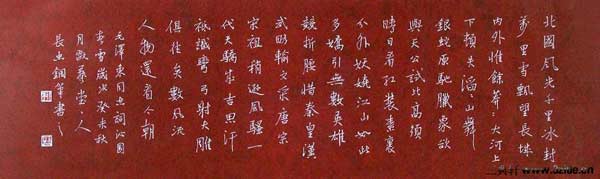 北國風光千里冰封
萬里雪飄望長城
内外惟餘莽々大河上
下頓失滔々山舞
銀蛇原馳臘象欲
與天公試比高須
時日看紅裝素裹
分外妖嬈江山如此
多嬌引無數英雄
競折腰惜秦皇漢
武略輸文采唐宗
宋祖稍遜風騷一
代天驕成吉思汗
祗識彎弓射大雕
俱往矣數風流
人物還看今朝
毛澤東同志詞沁園
春雪歲次癸未秋